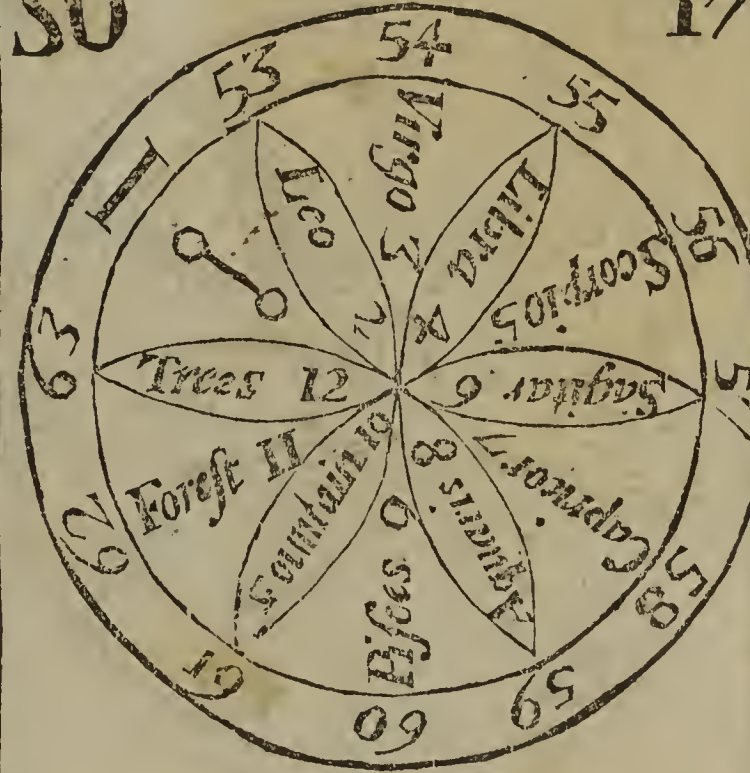 50
17
I
53
54
55
56
57
58
59
60
61
62
63
Leo 2
Virgo 3
Libra 4
Scorpio 5
Sagitar. 6
Capricor. 7
Aquaris 8
Piſces 9
Fountain 10
Foreſt 11
Trees 12